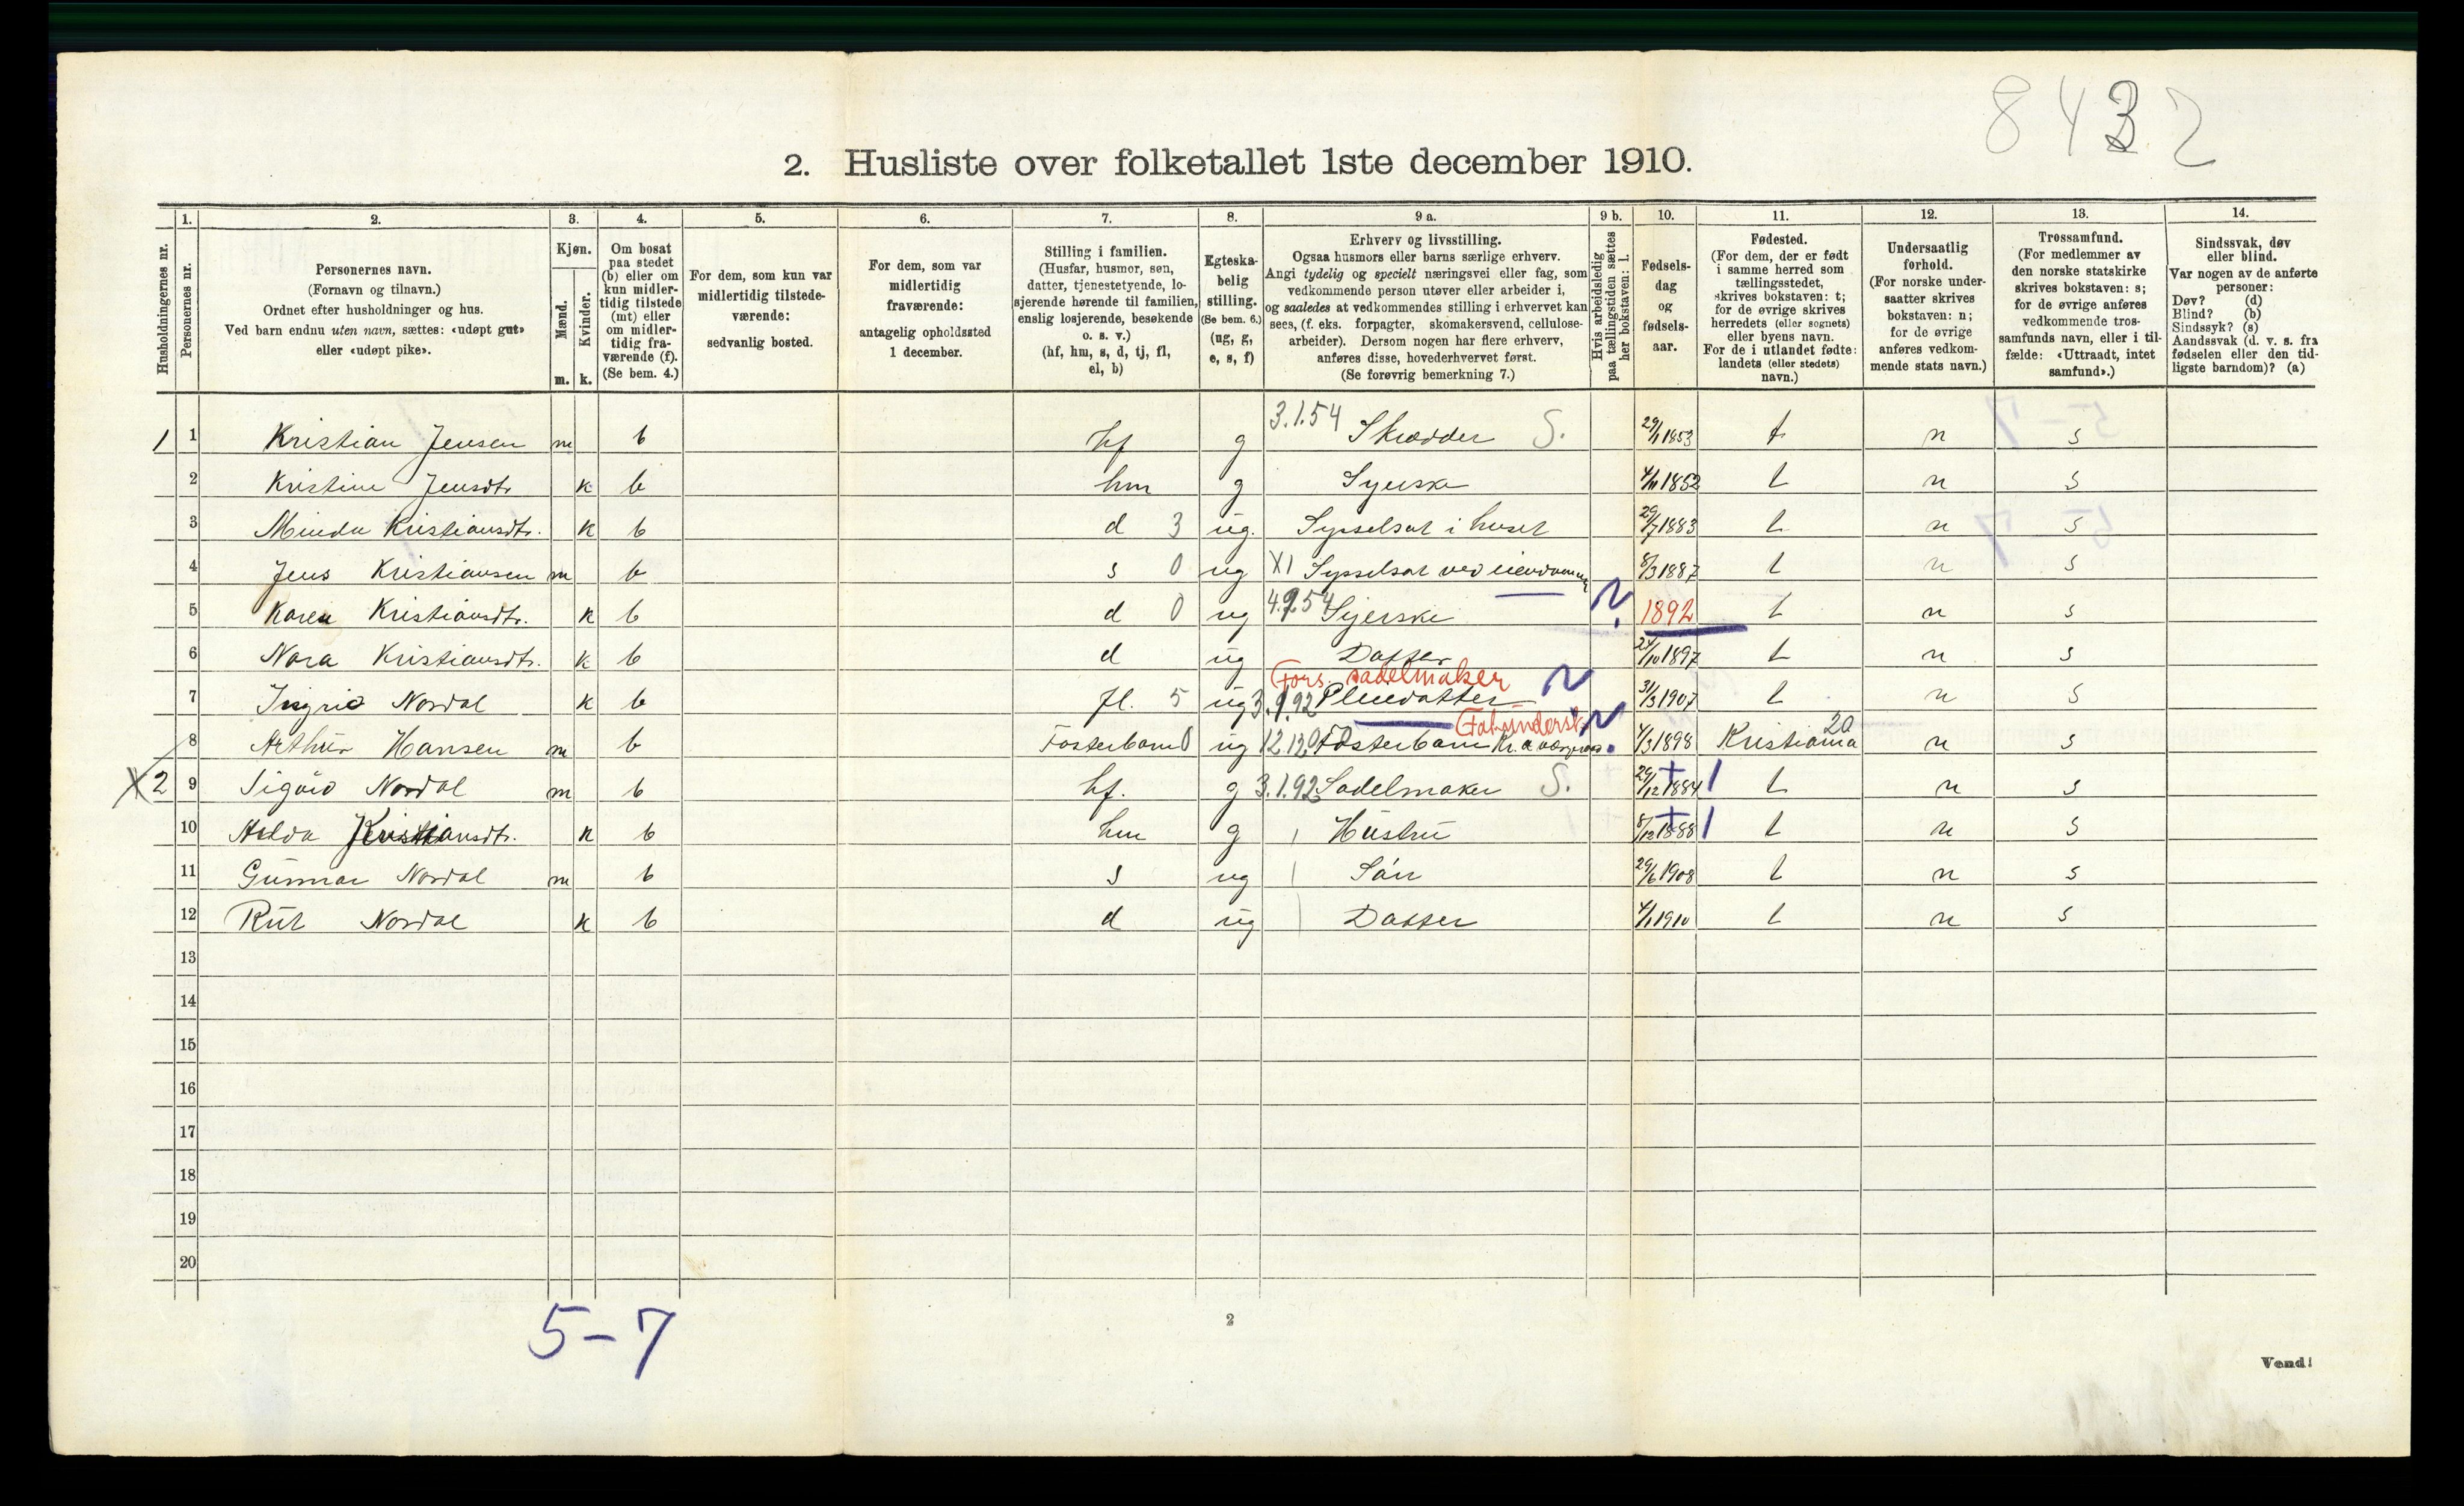 8432
2. Husliste over folketallet 1ste december 1910.
1. 2. 3. 4. 5. 6. 7. 8. 9 a. 9 b. 10. 11. 12. 13. 14.
Husholdningernes nr.
Personernes nr.
Personernes navn.
(Fornavn og tilnavn.)
Ordnet efter husholdninger og hus.
Ved barn endnu uten navn, sættes: «udøpt gut»
eller «udøpt pike».
Kjøn.
Mænd.
Kvinder.
m. k.
Om bosat
paa stedet
(b) eller om
kun midler-
tidig tilstede
(mt) eller
om midler-
tidig fra-
værende (f).
(Se bem. 4.)
For dem, som kun var
midlertidig tilstede-
værende:
sedvanlig bosted.
For dem, som var
midlertidig
fraværende:
antagelig opholdssted
1 december.
Stilling i familien.
(Husfar, husmor, søn,
datter, tjenestetyende, lo-
sjerende hørende til familien,
enslig losjerende, besøkende
o. s. v.)
(hf, hm, s, d, tj, fl,
el, b)
Egteska-
belig
stilling.
(Se bem. 6.)
(ug, g,
e, s, f)
Erhverv og livsstilling.
Ogsaa husmors eller barns særlige erhverv.
Angi tydelig og specielt næringsvei eller fag, som
vedkommende person utøver eller arbeider i,
og saaledes at vedkommendes stilling i erhvervet kan
sees, (f. eks. forpagter, skomakersvend, cellulose-
arbeider). Dersom nogen har flere erhverv,
anføres disse, hovederhvervet først.
(Se forøvrig bemerkning 7.)
Hvis arbeidsledig
paa tællingstiden sættes
her bokstaven: l.
Fødsels-
dag
og
fødsels-
aar.
Fødested.
(For dem, der er født
i samme herred som
tællingsstedet,
skrives bokstaven: t;
for de øvrige skrives
herredets (eller sognets)
eller byens navn.
For de i utlandet fødte:
landets (eller stedets)
navn.)
Undersaatlig
forhold.
(For norske under-
saatter skrives
bokstaven: n;
for de øvrige
anføres vedkom-
mende stats navn.)
Trossamfund.
(For medlemmer av
den norske statskirke
skrives bokstaven: s;
for de øvrige anføres
vedkommende tros-
samfunds navn, eller i til-
fælde: «Uttraadt, intet
samfund».)
Sindssvak, døv
eller blind.
Var nogen av de anførte
personer:
Døv? (d)
Blind? (b)
Sindssyk? (s)
Aandssvak (d. v. s. fra
fødselen eller den tid-
ligste barndom)? (a)
1 1 Kristian Jensen m b hf g 3.1.54 Skrædder S. 29/1 1853 t n s
2 Kristine Jensdtr k b hm g Syerske 4/11 1852 t n s
3 Minda Kristiansdtr. k b d 3 ug. Sysselsat i huset 29/7 1883 t n s
4 Jens Kristiansen m b s 0 ug XI Sysselsat ved eiendommen 8/3 1887 t n s
5 Karen Kristiansdtr. k b d 0 ug 4.9.54 Syerske 1892 t n s
6 Nora Kristiansdtr. k b d ug Datter 24/10 1897 t n s
Fors. sadelmaker
7 Ingrid Nordal k b fl. 5 ug 3.1.92 Pleiedatter 31/3 1907 t n s
8 Arthur Hansen m b Fosterbarn 0 ug 12.13.0 Fosterbarn Kr.a 4/3 1898 Kristiania 20 n s
X 2 9 Sigurd Nordal m b hf. g 3.1.92 Sadelmaker S. 29/12 1884 t n s
10 Hilda Kristiansdtr. k b hm g Hustru 8/12 1888 t n s
11 Gunnar Nordal m b s ug Søn 29/6 1908 t n s
12 Rut Nordal k b d ug Datter 4/1 1910 t n s
13
14
15
16
17
18
19
20
5-7
2
Vend!